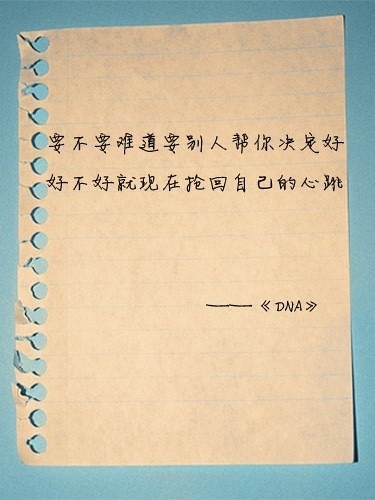 要不要难道要别人帮你决定好
好不好就现在抢回自己的心跳
——《DNA》